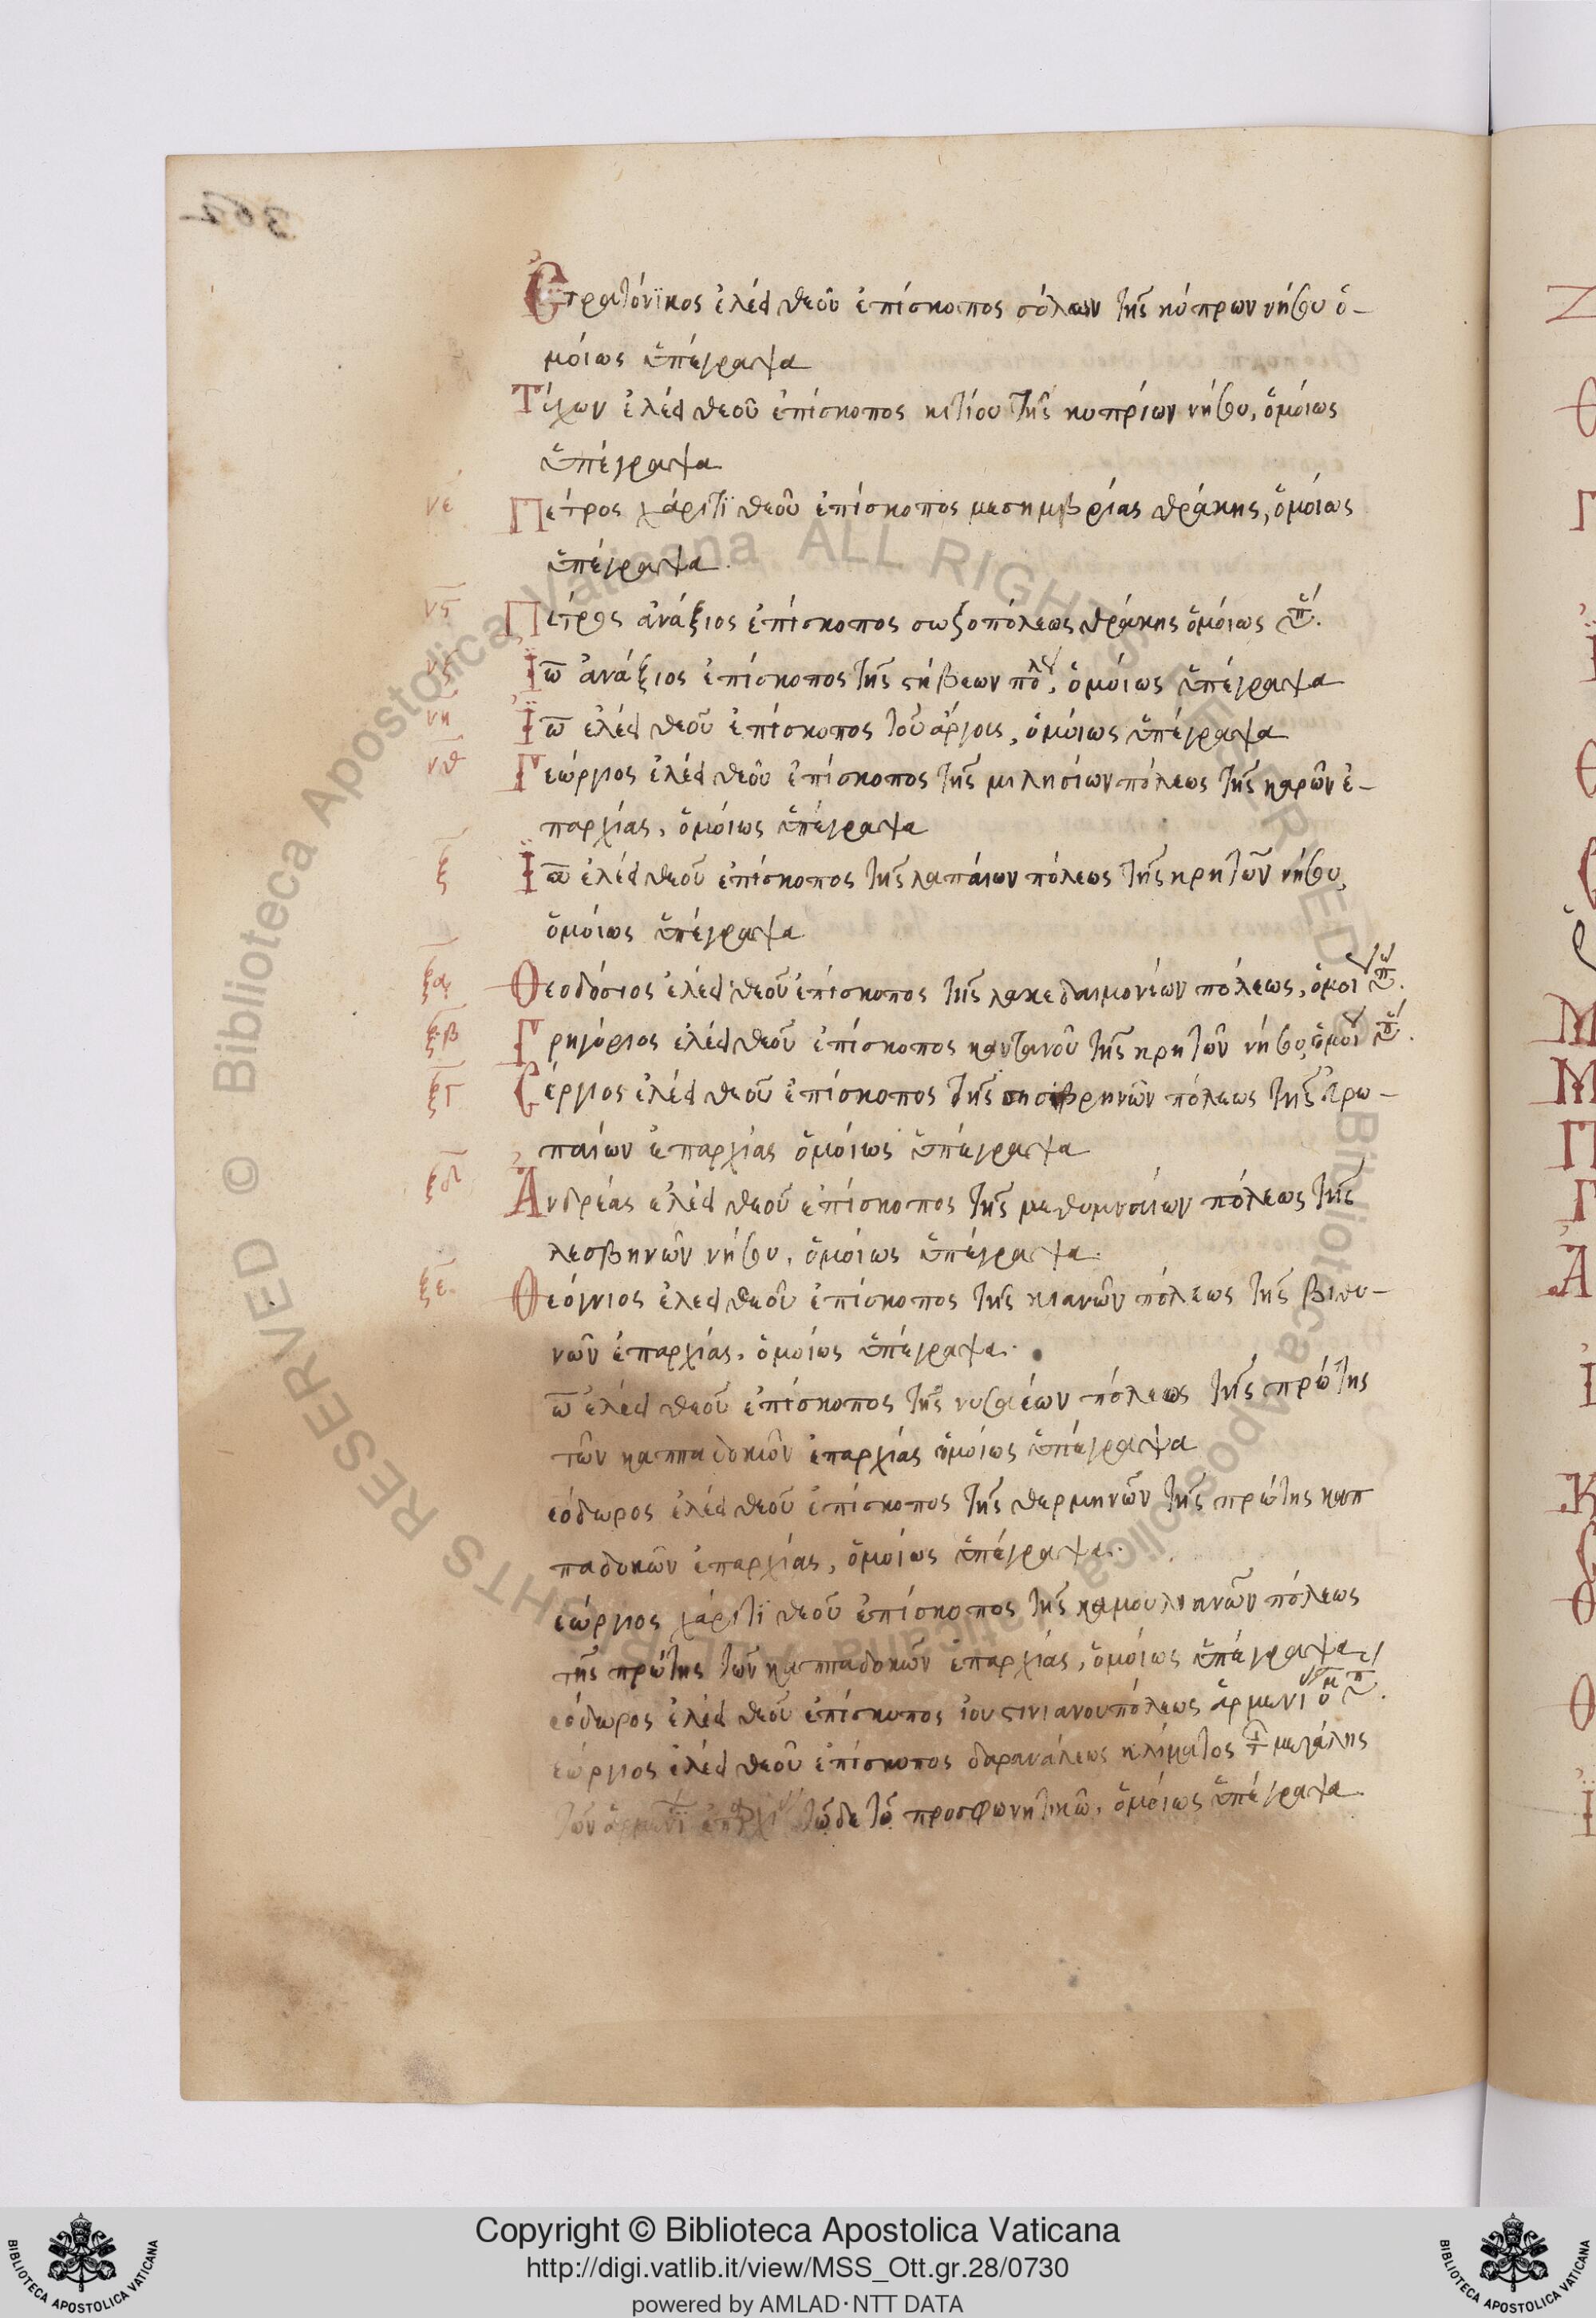 362
Στρατόνϊκος ἐλέει θεοῦ ἐπίσκοπος σόλων τῆς κύπρων νήσου ὁ-
μοίως ὑπέγραψα
Τύχων ἐλέει θεοῦ ἐπίσκοπος κιτίου τῆς κυπρίων νήσου, ὁμοίως
ὑπέγραψα
νε Πέτρος χάριτϊ θεοῦ ἐπίσκοπος μεσημβρίας θράκης, ὁμοίως
ὑπέγραψα.
νς Πέτρος ἀνάξιος ἐπίσκοπος σωζοπόλεως θράκης ὁμοίως ὑπ.
νζ Ἰω ἀνάξιος ἐπίσκοπος τῆς στήβεων πολ, ὁμοίως ὑπέγραψα
νη Ἰω ἐλέει θεοῦ ἐπίσκοπος τοῦ ἄργους, ὁμοίως ὑπέγραψα
νθ Γεώργιος ἐλέει θεοῦ ἐπίσκοπος τῆς μιλησίων πόλεως τῆς καρῶν ἐ-
παρχίας, ὁμοίως ὑπέγραψα
ξ Ἰω ἐλέει θεοῦ ἐπίσκοπος τῆς λαπάιων πόλεως τῆς κρητῶν νήσου,
ὁμοίως ὑπέγραψα
ξα Θεοδόσιος ἐλέει θεοῦ ἐπίσκοπος τῆς λακεδαιμονίων πόλεως, ὁμοι ὑπ.
ξβ Γρηγόριος ἐλέει θεοῦ ἐπίσκοπος καντανοῦ τῆς κρητῶν νήσου, ὁμοι ὑπ.
ξγ Σέργιος ἐλέει θεοῦ ἐπίσκοπος τῆς πόλεως τῆς εὐρω-
παίων ἐπαρχίας ὁμοίως ὑπέγραψα
ξδ Ἀνδρέας ἐλέει θεοῦ ἐπίσκοπος τῆς μεθυμναίων πόλεως τῆς
λεσβηνῶν νήσου, ὁμοίως ὑπέγραψα.
ξε Θεόγνιος ἐλέει θεοῦ ἐπίσκοπος τῆς κιανῶν πόλεως τῆς βιθυ-
νῶν ἐπαρχίας, ὁμοίως ὑπέγραψα.
ω ἐλέει θεοῦ ἐπίσκοπος τῆς νυσαέων πόλεως τῆς πρώτης
τῶν καππαδοκιῶν ἐπαρχίας ὁμοίως ὑπέγραψα
εόδωρος ἐλέει θεοῦ ἐπίσκοπος τῆς θερμηνῶν τῆς πρώτης καπ
παδοκῶν ἐπαρχίας, ὁμοίως ὑπέγραψα.
εώργιος χάριτϊ θεοῦ ἐπίσκοπος τῆς καμουληηνῶν πόλεως
τῆς πρώτης τῶν καππαδοκῶν ἐπαρχίας, ὁμοίως ὑπέγραψα
εόδωρος ἐλέει θεοῦ ἐπίσκοπος ἰουστινιανουπόλεως ἀρμενι ὁμ ὑπ.
εώργιος ἐλέει θεοῦ ἐπίσκοπος δαρανάλεως κλίματος τ μεγάλης
τῶν ἀρμενϊ ἐπαρχι τῶδε τῶ προσφωνητικῶ, ὁμοίως ὑπέγραψα
© Biblioteca Apostolica Vaticana ALL RIGHTS RESERVED
Copyright © Biblioteca Apostolica Vaticana
http://digi.vatlib.it/view/MSS_Ott.gr.28/0730
powered by AMLAD·NTT DATA
BIBLIOTECA APOSTOLICA VATICANA
BIBLIOTECA APOSTOLICA VATICANA